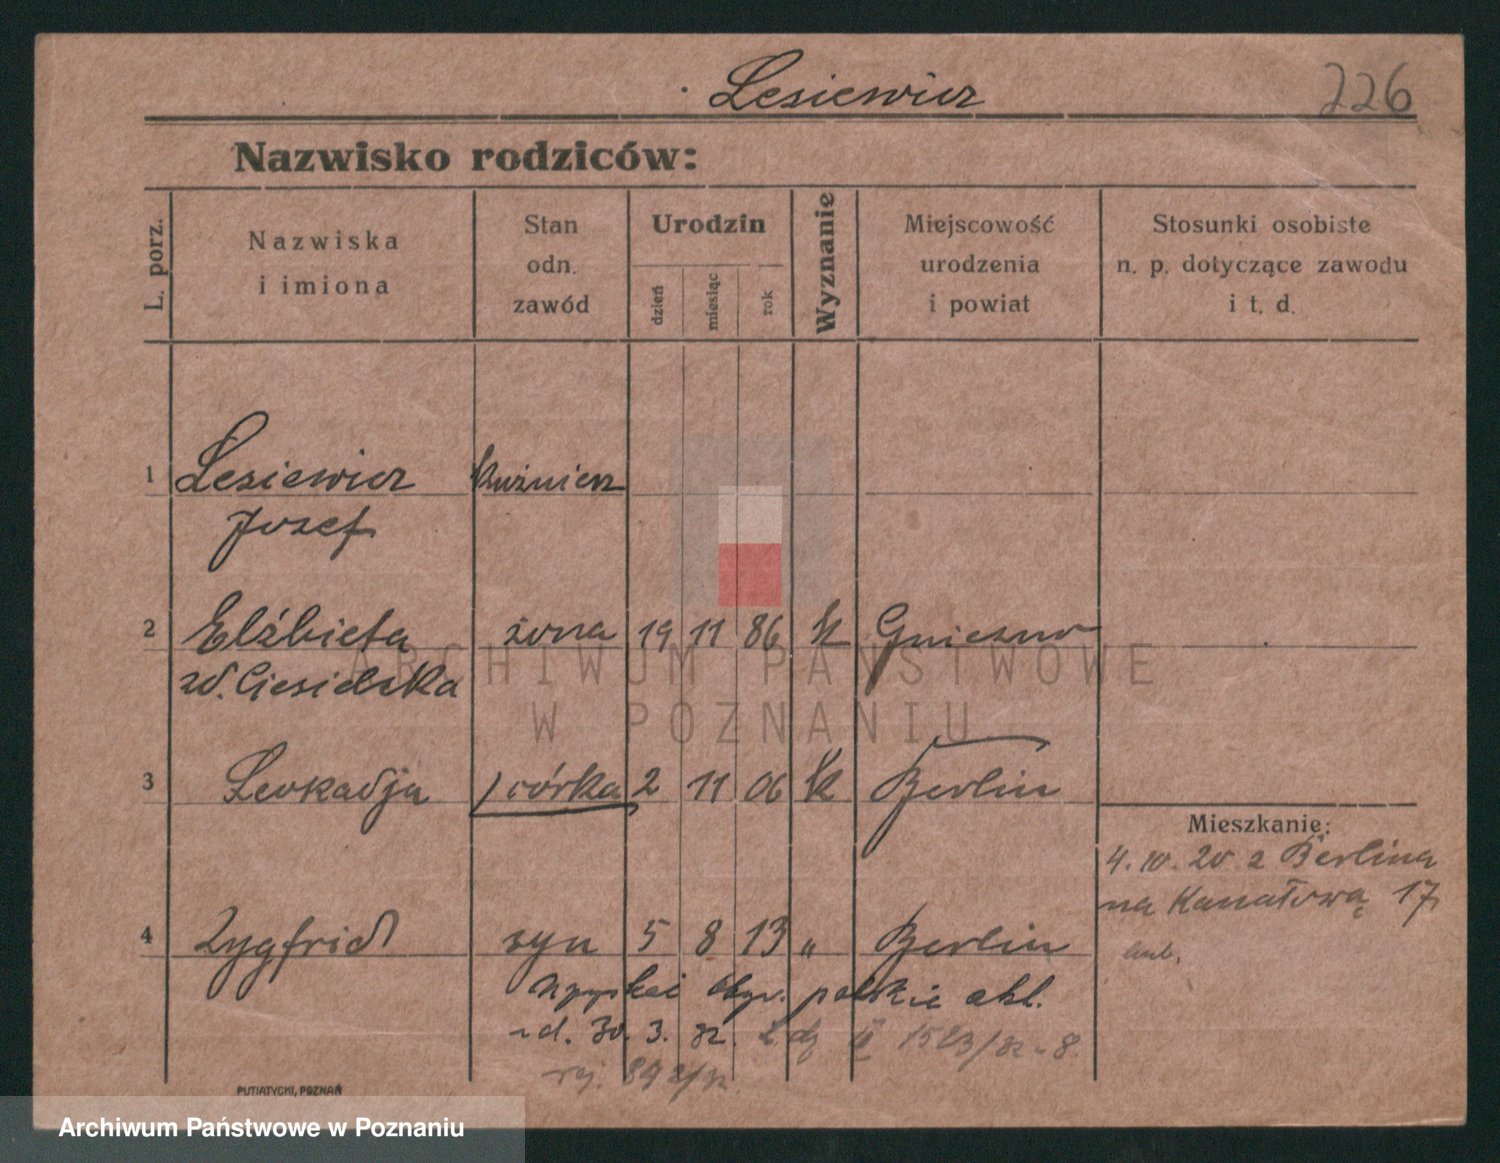 Lesiewicz
226
Nazwisko rodziców:
L. porz.
Nazwiska
i imiona
Stan
odn.
zawód
Urodzin
dzień
miesiąc
rok
Wyznanie
Miejscowość
urodzenia
i powiat
Stosunki osobiste
n. p. dotyczące zawodu
i t. d.
1 Lesiewicz kuśnierz
Jozef
2 Elżbieta żona 19 11 86 k Gniezno
w. Ciesielska
3 Leokadja córka 2 11 06 k Berlin
Mieszkanie:
4. 10. 20 z Berlina
na Kanałową 17
4 Zygfrid syn 5 8 13 " Berlin
uzyskał obyw. polskie
d. 30. 3. 32.
PUTIATYCKI, POZNAŃ
ARCHIWUM PAŃSTWOWE
W POZNANIU
Archiwum Państwowe w Poznaniu